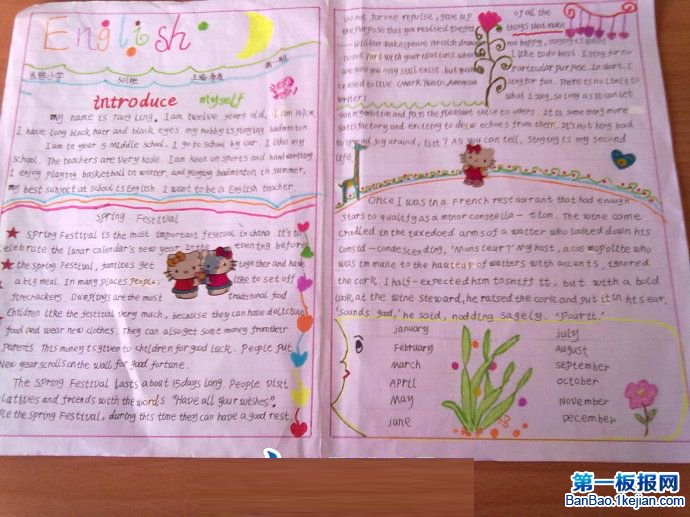 English
introduce myself
my name is Tang Ling. I am twelve years old, I am
I have long black hair and black eyes. my hobby is playing badminton
I am in year 5 Middle school. I go to school by car. I like my
school. The teachers are very kide. I am keen on sports and hard working
I enjoy playing basketball in winter, and playing badminton in summer,
my best subject at school is English. I want to be a English teacher.
Spring Festival
Spring Festival is the most important feserval in china. It's to
celebrate the lunar calendar's new year. In the evening before
the spring Festival, families get together and have
a big meal. In many places People like to set off
firecrackers. Dumplings are the most traditional food
Children like the festival very much, because they can have delicious
food and wear new clothes. They can also get some money from their
parents. This money is given to children for good luck. People put
New year scrolls on the wall for good fortune.
The Spring Festival lasts about 15 days long. People visit
latives and friends with the words "Have all your wishes".
ple the Spring Festival, during this time they can have a good rest.
Do not, for one repulse, give up
the purpose that you resolved to effect
William Shakespeare, British dramatist
Don't part with your illusions when
are gone you may still exist, but you
ceased to live (Mark Twain American
writer)
of all the
things that make
me happy, singing is what
I like to do best. I sing for no
particular purpose. In short. I
sing for fun. There is no limit to
what I sing, so long as it can let
out my motion and pass the pleasant voice to others. It is something more
satisfactory and exciting to draw echoes from them. It's nothing bad
to spread joy around, isit? As you can tell, singing is my second
life.
Once I was in a French restaurant that had enough
stars to qualify as a minor constella - tion. The wine came
cradled in the tuxedoed arms of a waiter who looked down his
consid - condescending, "Monsteur?" My host, a cosmopolite who
was immune to the hauteur of waiters with accents, ignored
the cork. I half-expected him to sniff it, but with a bold
look at the wine steward, he raised the cork and put it in his ear.
"Sounds good," he said, nodding sagely. "Pour it."
january
February
march
April
May
june
july
August
September
October
November
December
第一板报网
BanBao.1kejian.com